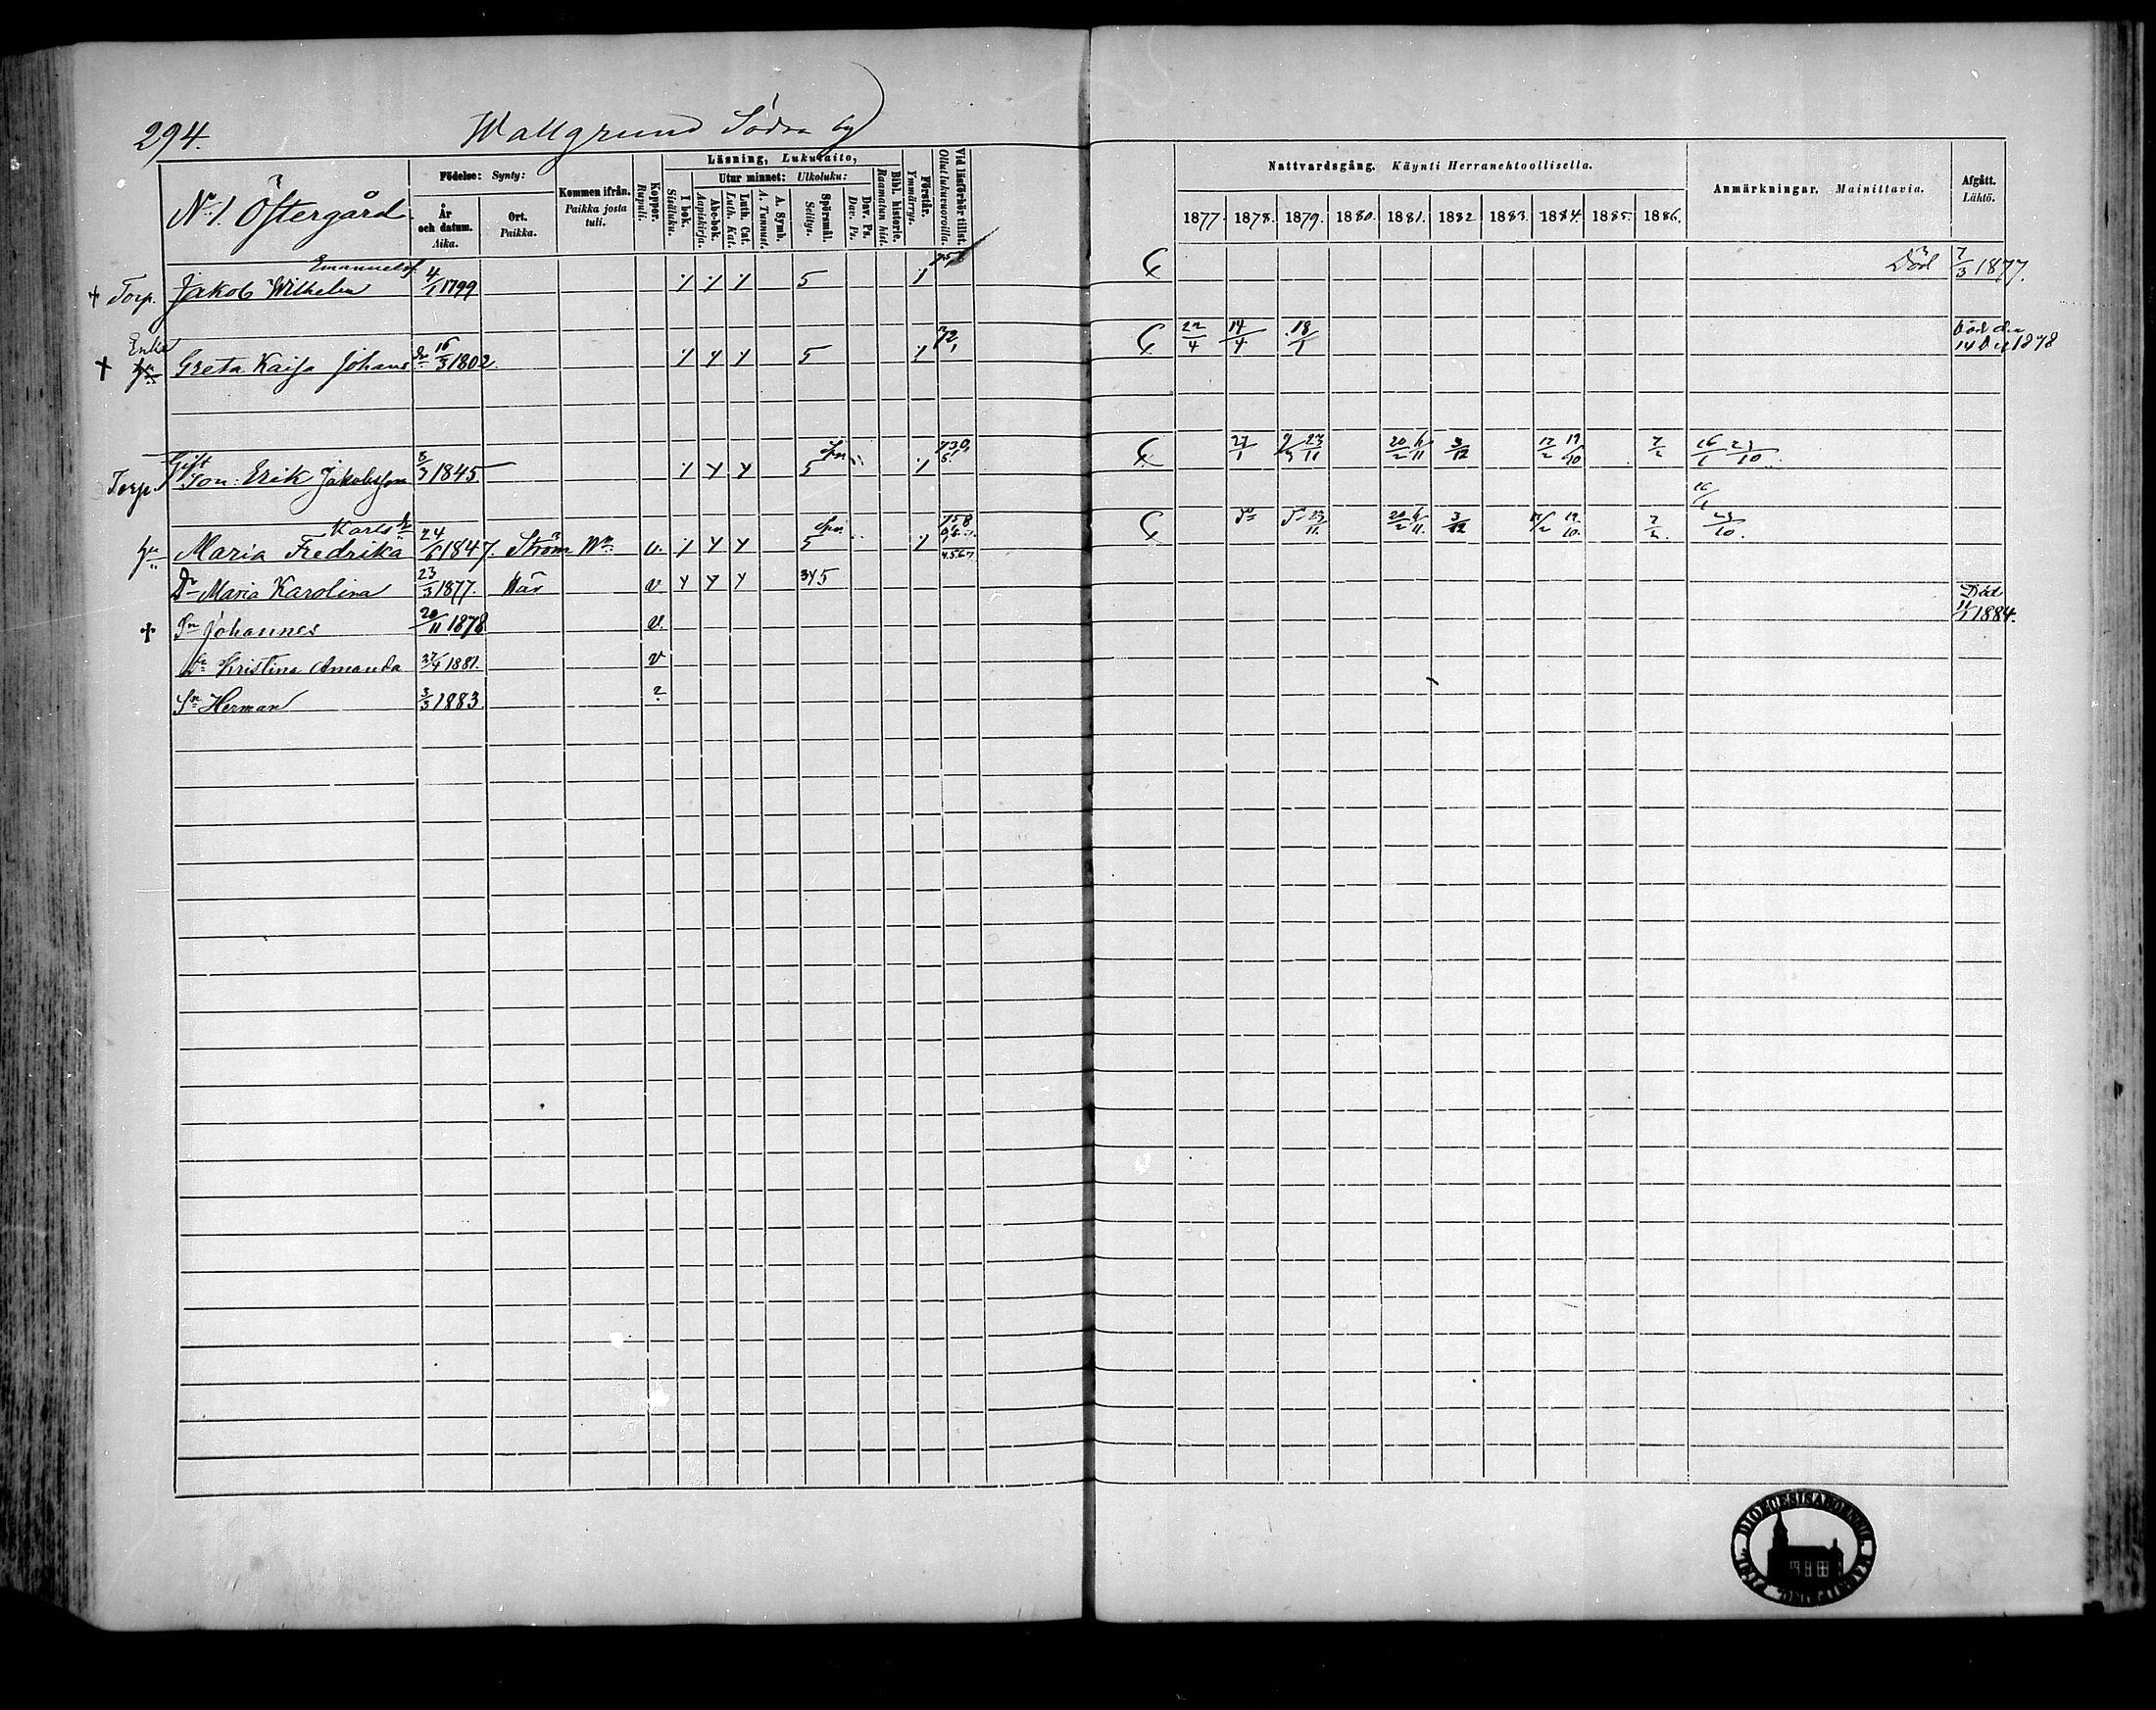 294. Wallgrund Södra by
No 1. Östergård.
Födelse: Synty:
År och datum. Aika.
Ort. Paikka.
Kommen ifrån. Paikka josta tuli.
Koppor. Rupuli.
Läsning, Lukutaito,
I bok. Sisäluku.
Utur minnet: Ulkoluku:
Abc-bok. Aapiskirja.
Luth. Cat. Luth. Kat.
A. Symb. A. Tunnust.
Spörsmål. Selitys.
Dav. Ps. Dav. Ps.
Bibl. historie. Raamatun hist.
Förstår. Ymmärrys.
Vid läsförhör tillst. Ollut lukuvuoroilla.
Nattvardsgång. Käynti Herranehtoollisella.
1877. 1878. 1879. 1880. 1881. 1882 1883. 1884. 1885. 1886.
Anmärkningar. Mainittavia.
Afgått. Lähtö.
Emanuelss.
+ Torp. Jakob Wilhelm 4/1 1799 5 Död 7/3 1877.
Enka
+ Greta Kaisa Johans dr 16/3 1802. 5 22/4 14/4 18/1 Död den 14 1878
Gift
Torp. Son: Erik Jakobsson 8/3 1845 5 27/1 23/11 20/2 6/11 3/12 12/2 19/10 7/2 16/1 23/10
16/1
Karls dr
Maria Fredrika 24/6 1847. Ström v. 5 23/11. 20/2 6/11. 3/12 19/10. 7/2. 23/10.
4.5.6.7.
Dr Maria Karolina 23/3 1877. Här v 345
+ Sn Johannes 20/11 1878 v. Död 11/1 1884.
Dr Kristina Amanda 27/4 1881. v
Sn Herman 3/3 1883. ?